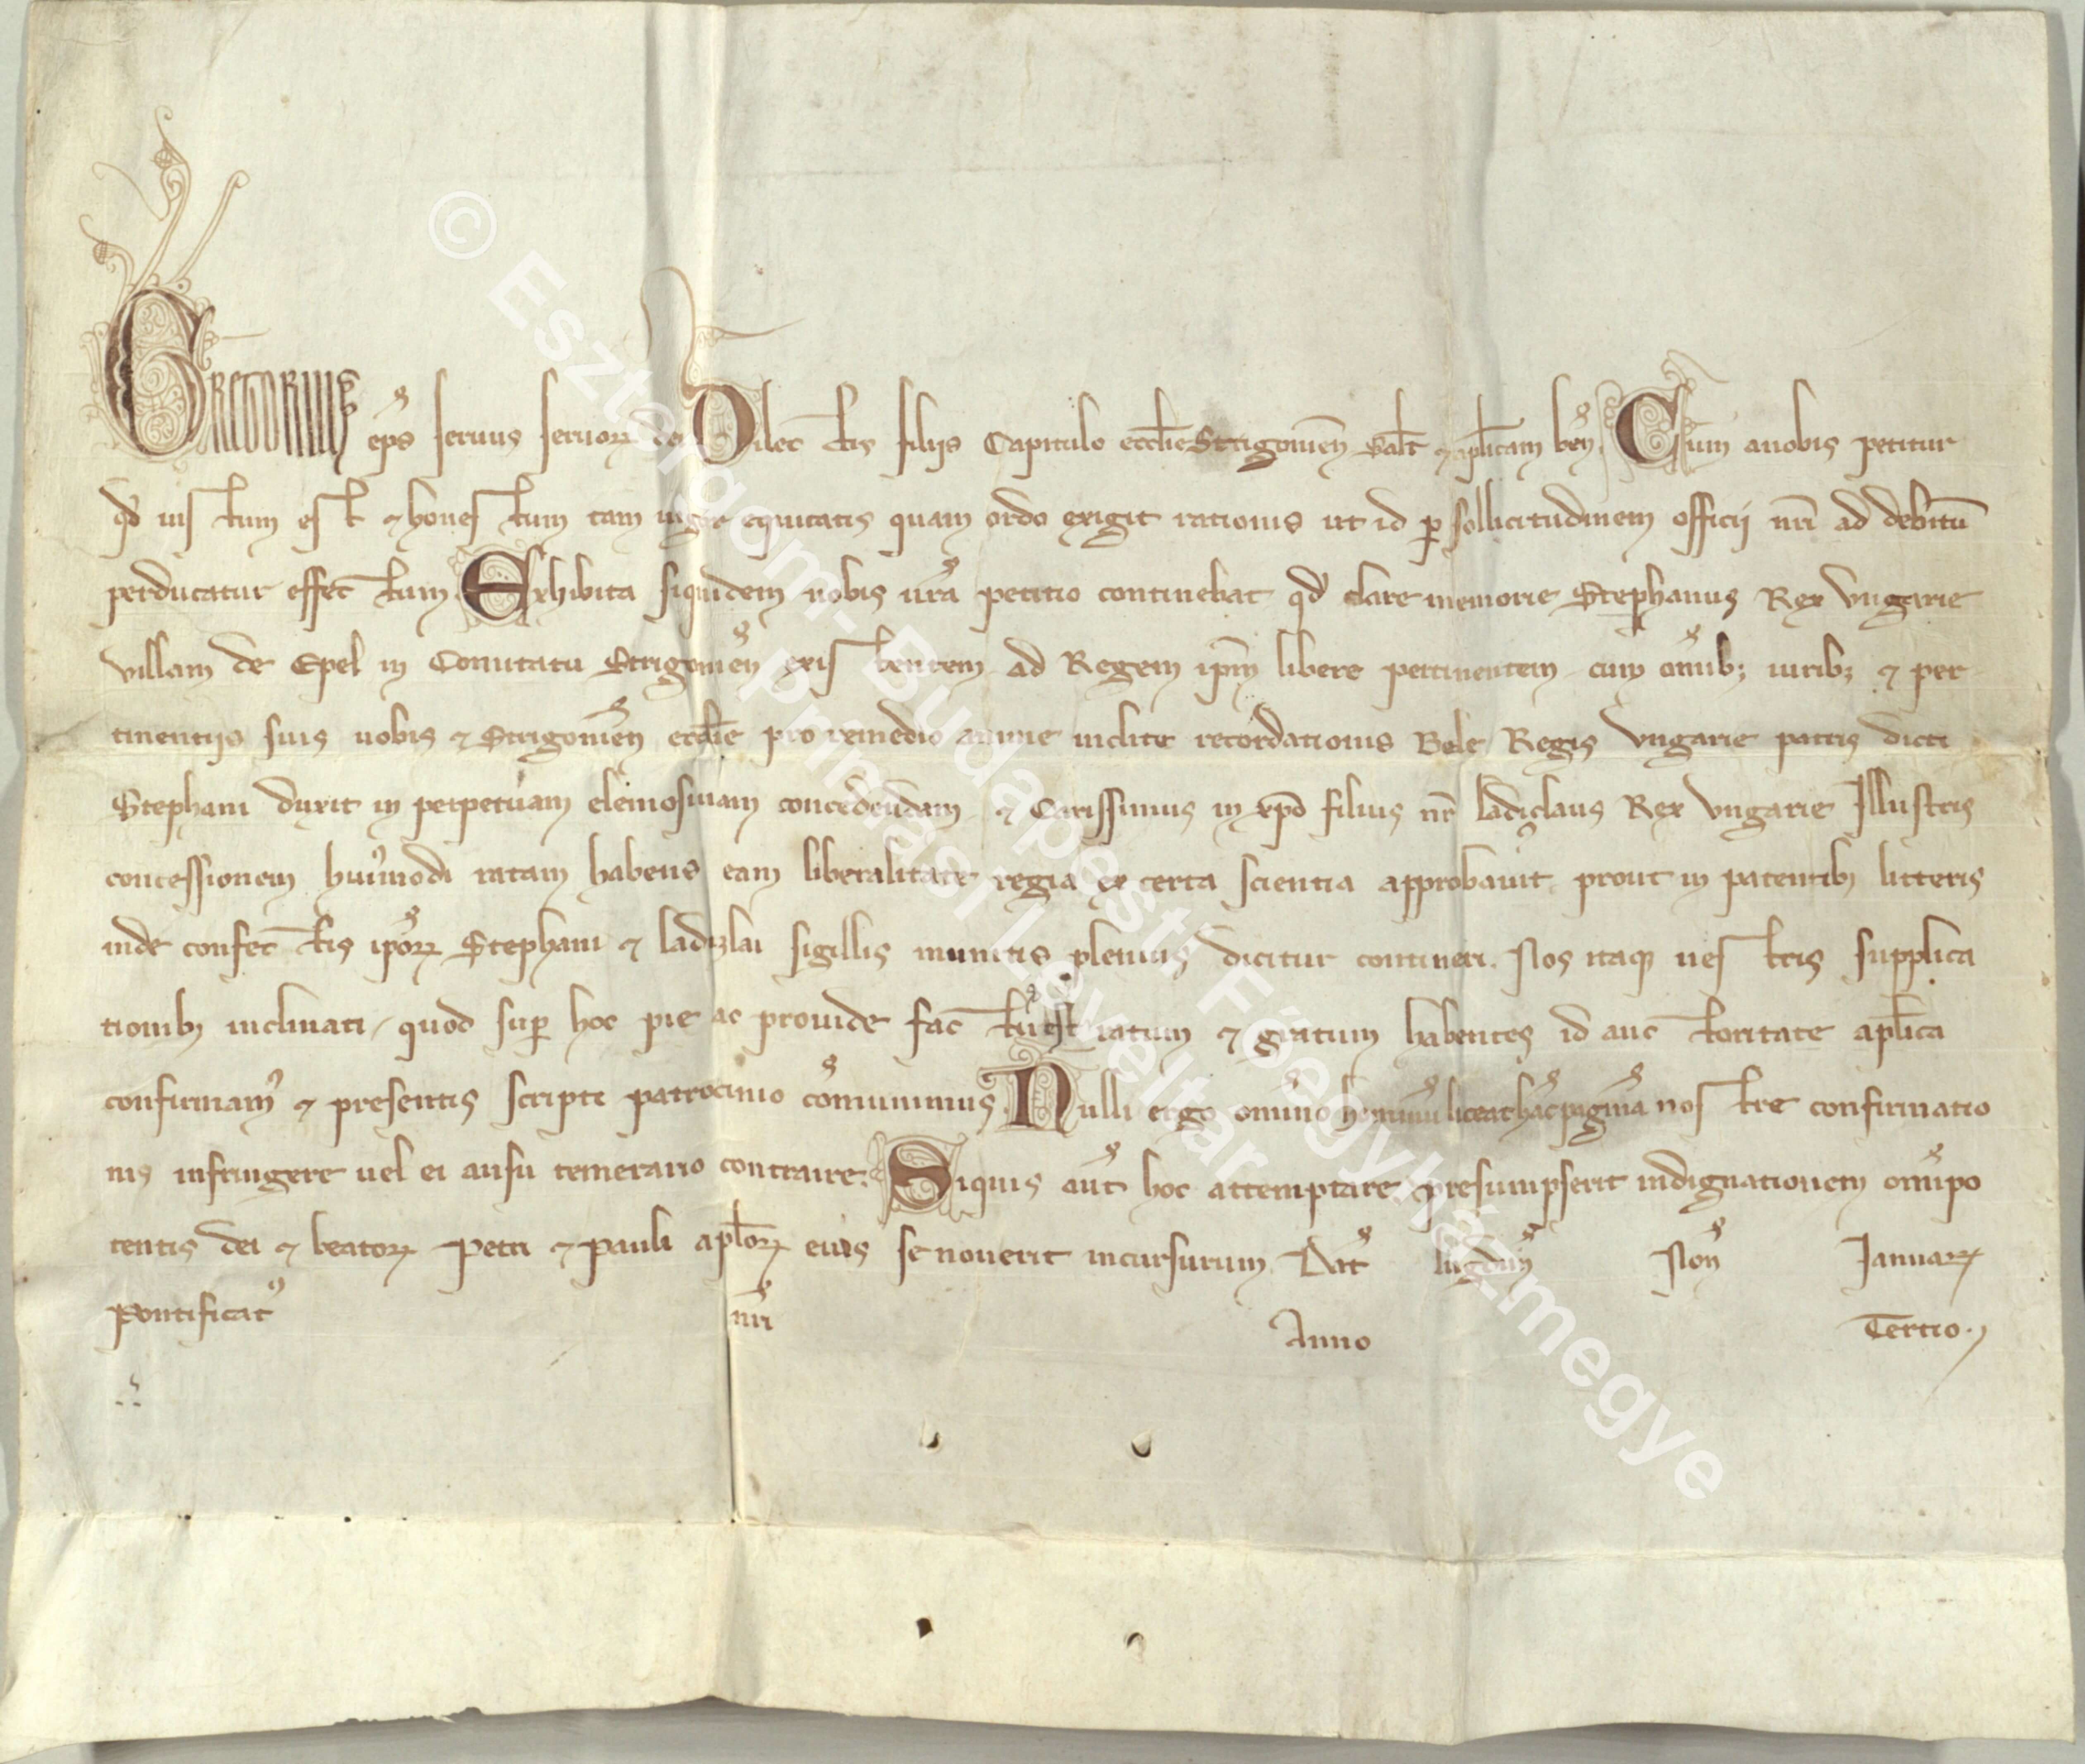 GREGORIUS ep̄s seruus seruoꝝ dei Dilectis filijs Capitulo ecctie Strigonien̄ Salt̄ ⁊ apl̄icam ben̄. Cum a nobis petitur
qd̄ iustum est ⁊ honestum tam uigor equitatis quam ordo exigit rationis ut id ꝑ sollicitudinem officij nr̄i ad debitū
perducatur effectum. Exhibita siquidem nobis ur̄a petitio continebat qd̄ clare memorie Stephanus Rex Vngarie
villam de Epel in Comitatu Strigonien̄ existentem ad Regem ip̄m libere pertinentem cum om̄ib; iurib; ⁊ per
tinentijs suis uobis ⁊ Strigonien̄ eccl̄ie pro remedio anime inclite recordationis Bele Regis Vngarie patris dicti
Stephani duxit in perpetuam elemosinam concedendam ⁊ Carissimus in xp̄o filius nr̄ Ladizlaus Rex Vngarie Illustris
concessionem huiꝰmodi ratam habens eam liberalitate regia ex certa scientia approbauit prout in patentib; litteris
inde confectis ip̄oꝝ Stephani ⁊ Ladizlai sigillis munitis plenius dicitur contineri. Nos itaqꝫ uestris supplica
tionib; inclinati / quod suꝑ hoc pie ac prouide factū est ratum ⁊ gratum habentes id auctoritate apl̄ica
confirmamꝰ ⁊ presentis scripti patrocinio cōmunimus. Nulli ergo om̄ino hominū liceat hāc paginā nostre confirmatio
nis infringere uel ei ausu temerario contraire. Siquis aut̄ hoc attemptare presumpserit indignationem om̄ipo
tentis dei ⁊ beatoꝝ Petri ⁊ Pauli apl̄oꝝ eius se nouerit incursurum. Dat̄ Lugdun̄ Non̄ Januaꝝ
Pontificatꝰ nr̄i Anno Tertio.
© Esztergom-Budapesti Főegyházmegye
Prímási Levéltár